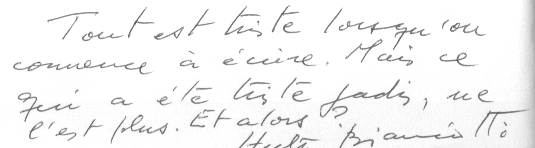 Tout est triste lorsqu'on
commence à écrire. Mais ce
qui a été triste jadis, ne
l'est plus. Et alors ?
Bianciotti